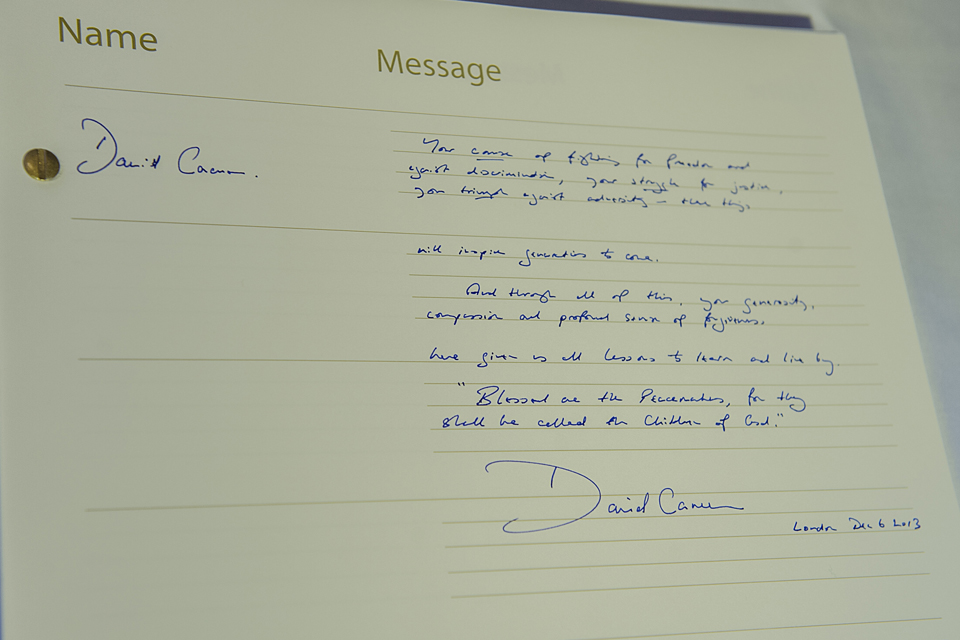 Name
Message
David Cameron.
Your cause of fighting for freedom and
against discrimination, your struggle for justice,
your triumph against adversity – these things
will inspire generations to come.
And through all of this, your generosity,
compassion and profound sense of forgiveness,
have given us all lessons to learn and live by.
"Blessed are the Peacemakers, for they
shall be called the Children of God."
David Cameron
London Dec 6 2013